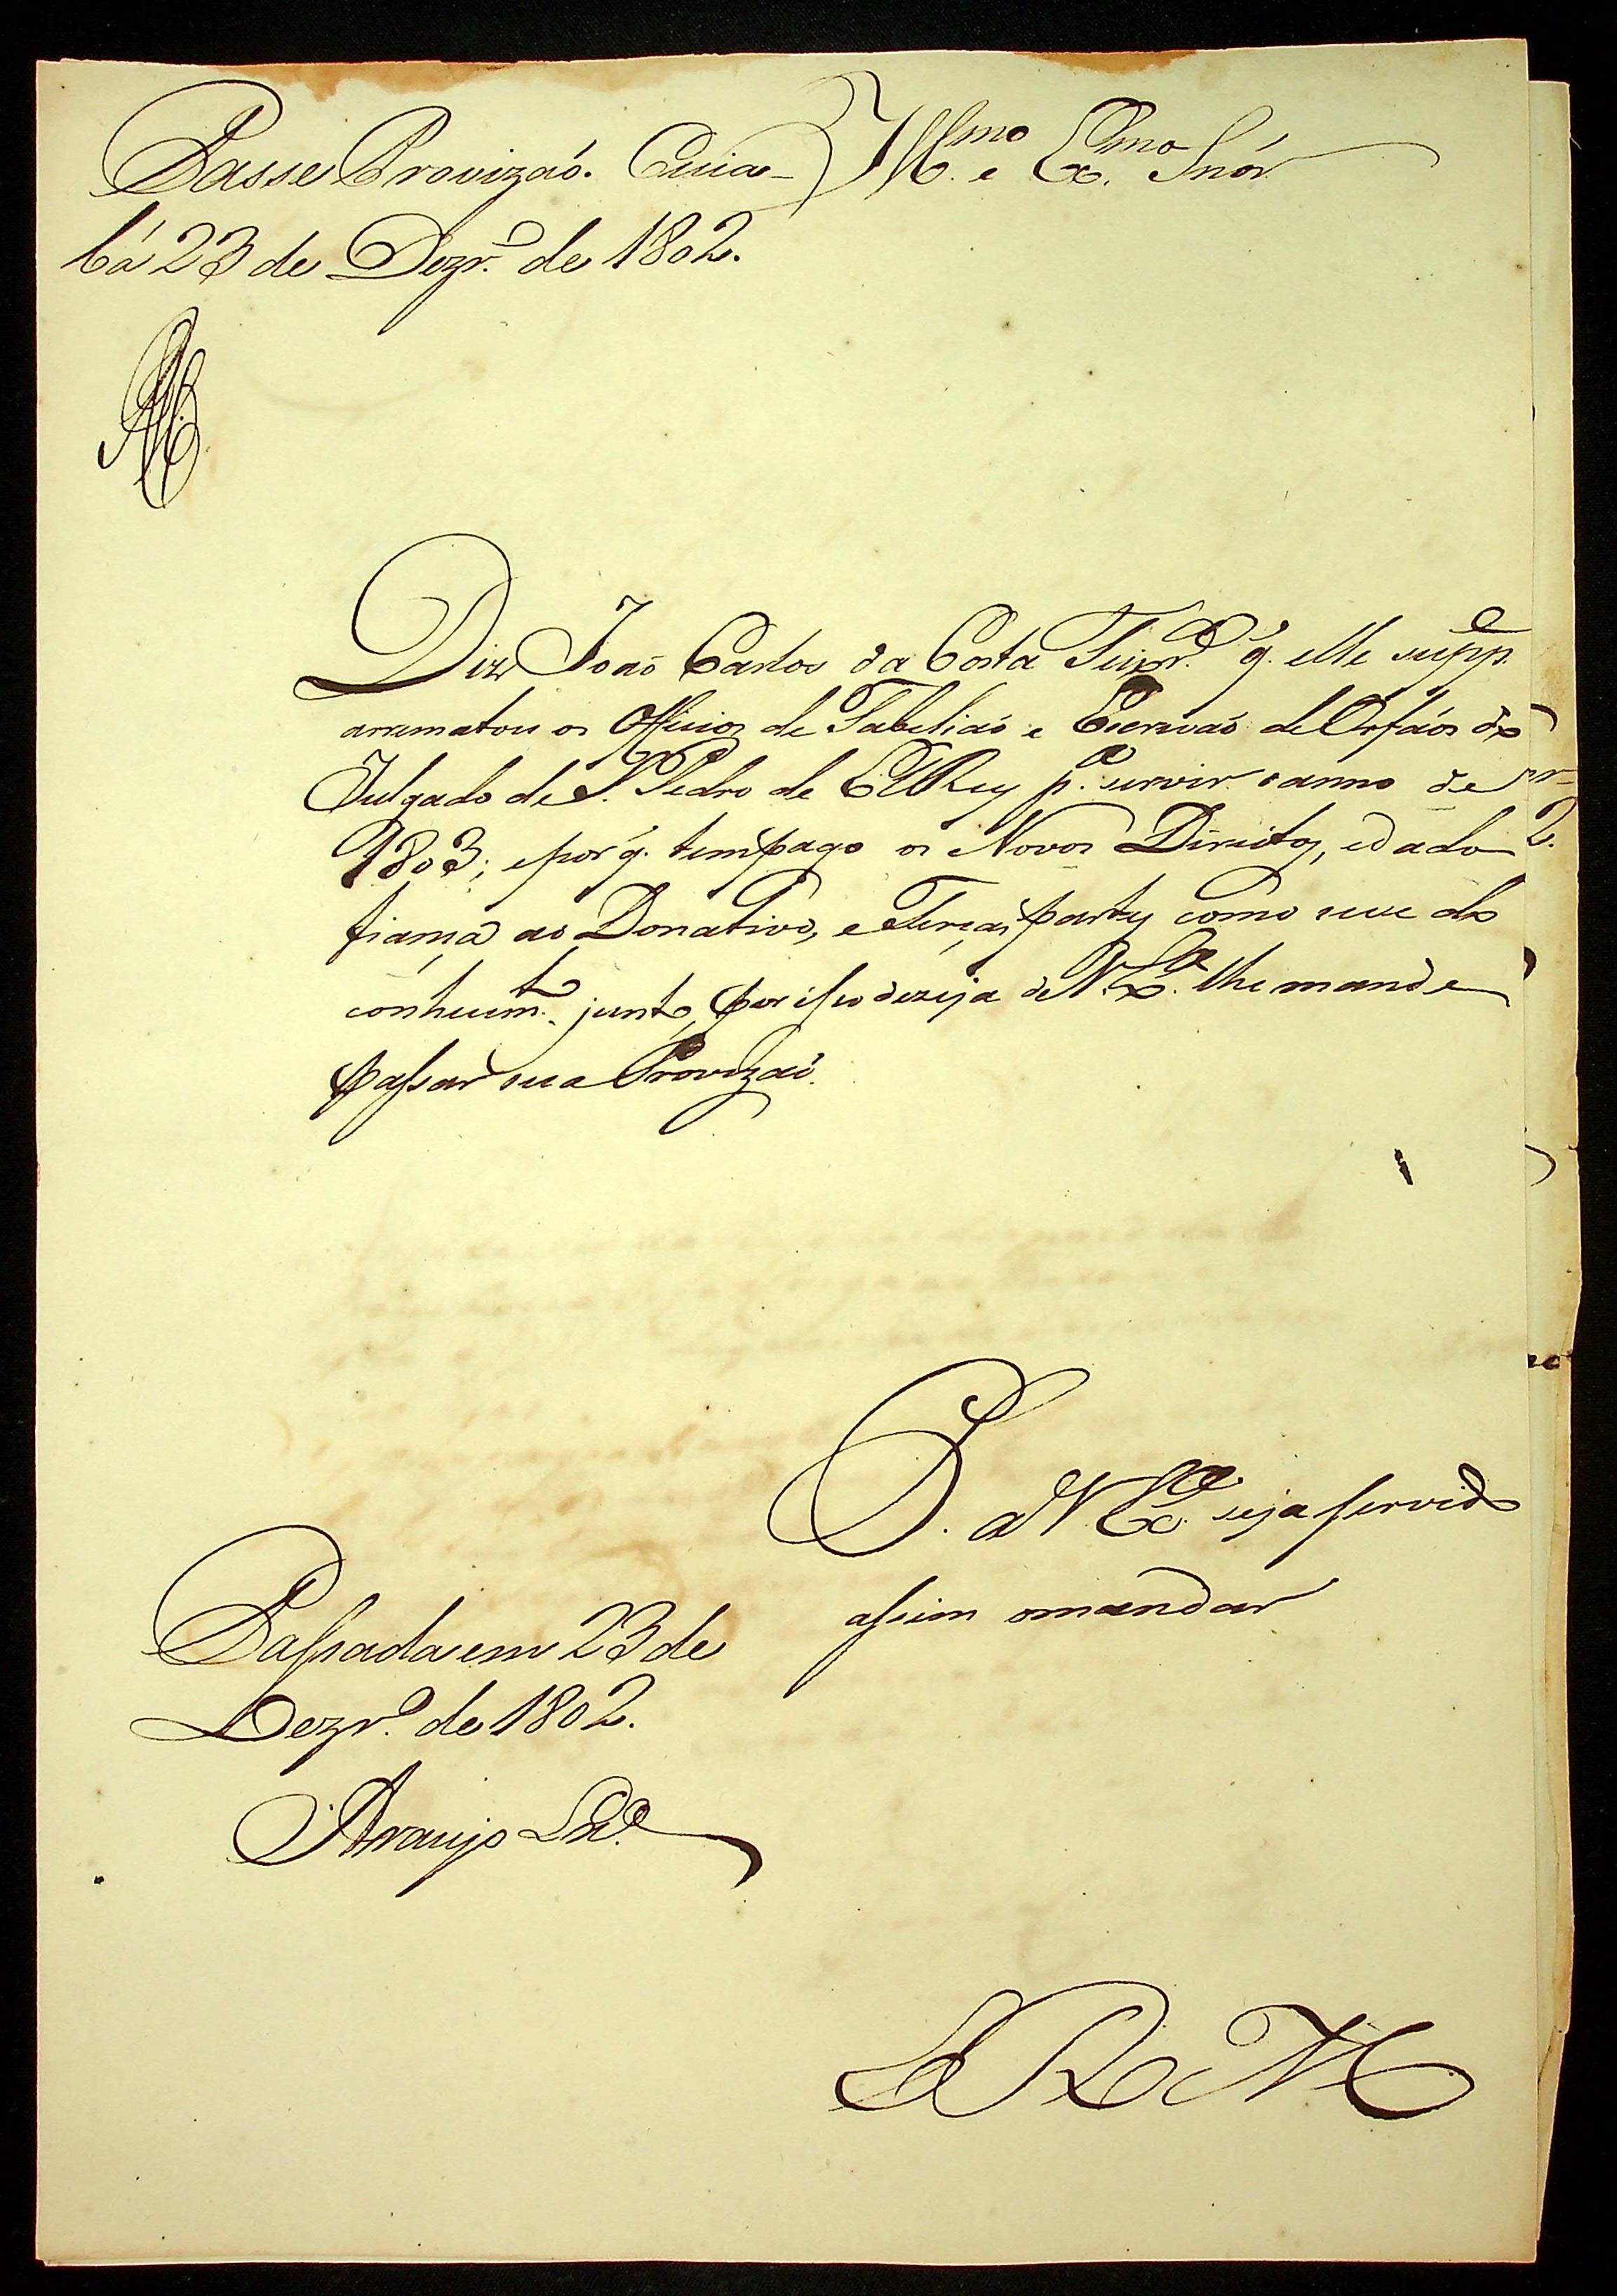 Passe Provizaó. Cuia-
bá 23 de Dezr.º de 1802.
Ill.mo e Ex.mo Snór
Diz Joaõ Carlos da Costa q̃. elle supp.e
arrematou os Officios de Tabeliaõ e Escrivaõ de Orfaõs do
Julgado de S. Pedro de ElRey p.a servir o anno de
1803; e por q̃. tem pago os Novos Direitos, e dado
fiança ao Donativo, e Terças partes como se ve do
conhecim.to junto, por isso dezeja de V. Ex.a lhe mande
passar sua Provizaõ.
P. a V. Ex.a seja servido
assim o mandar
Passada em 23 de
Dezr.º de 1802.
Araujo
E R M